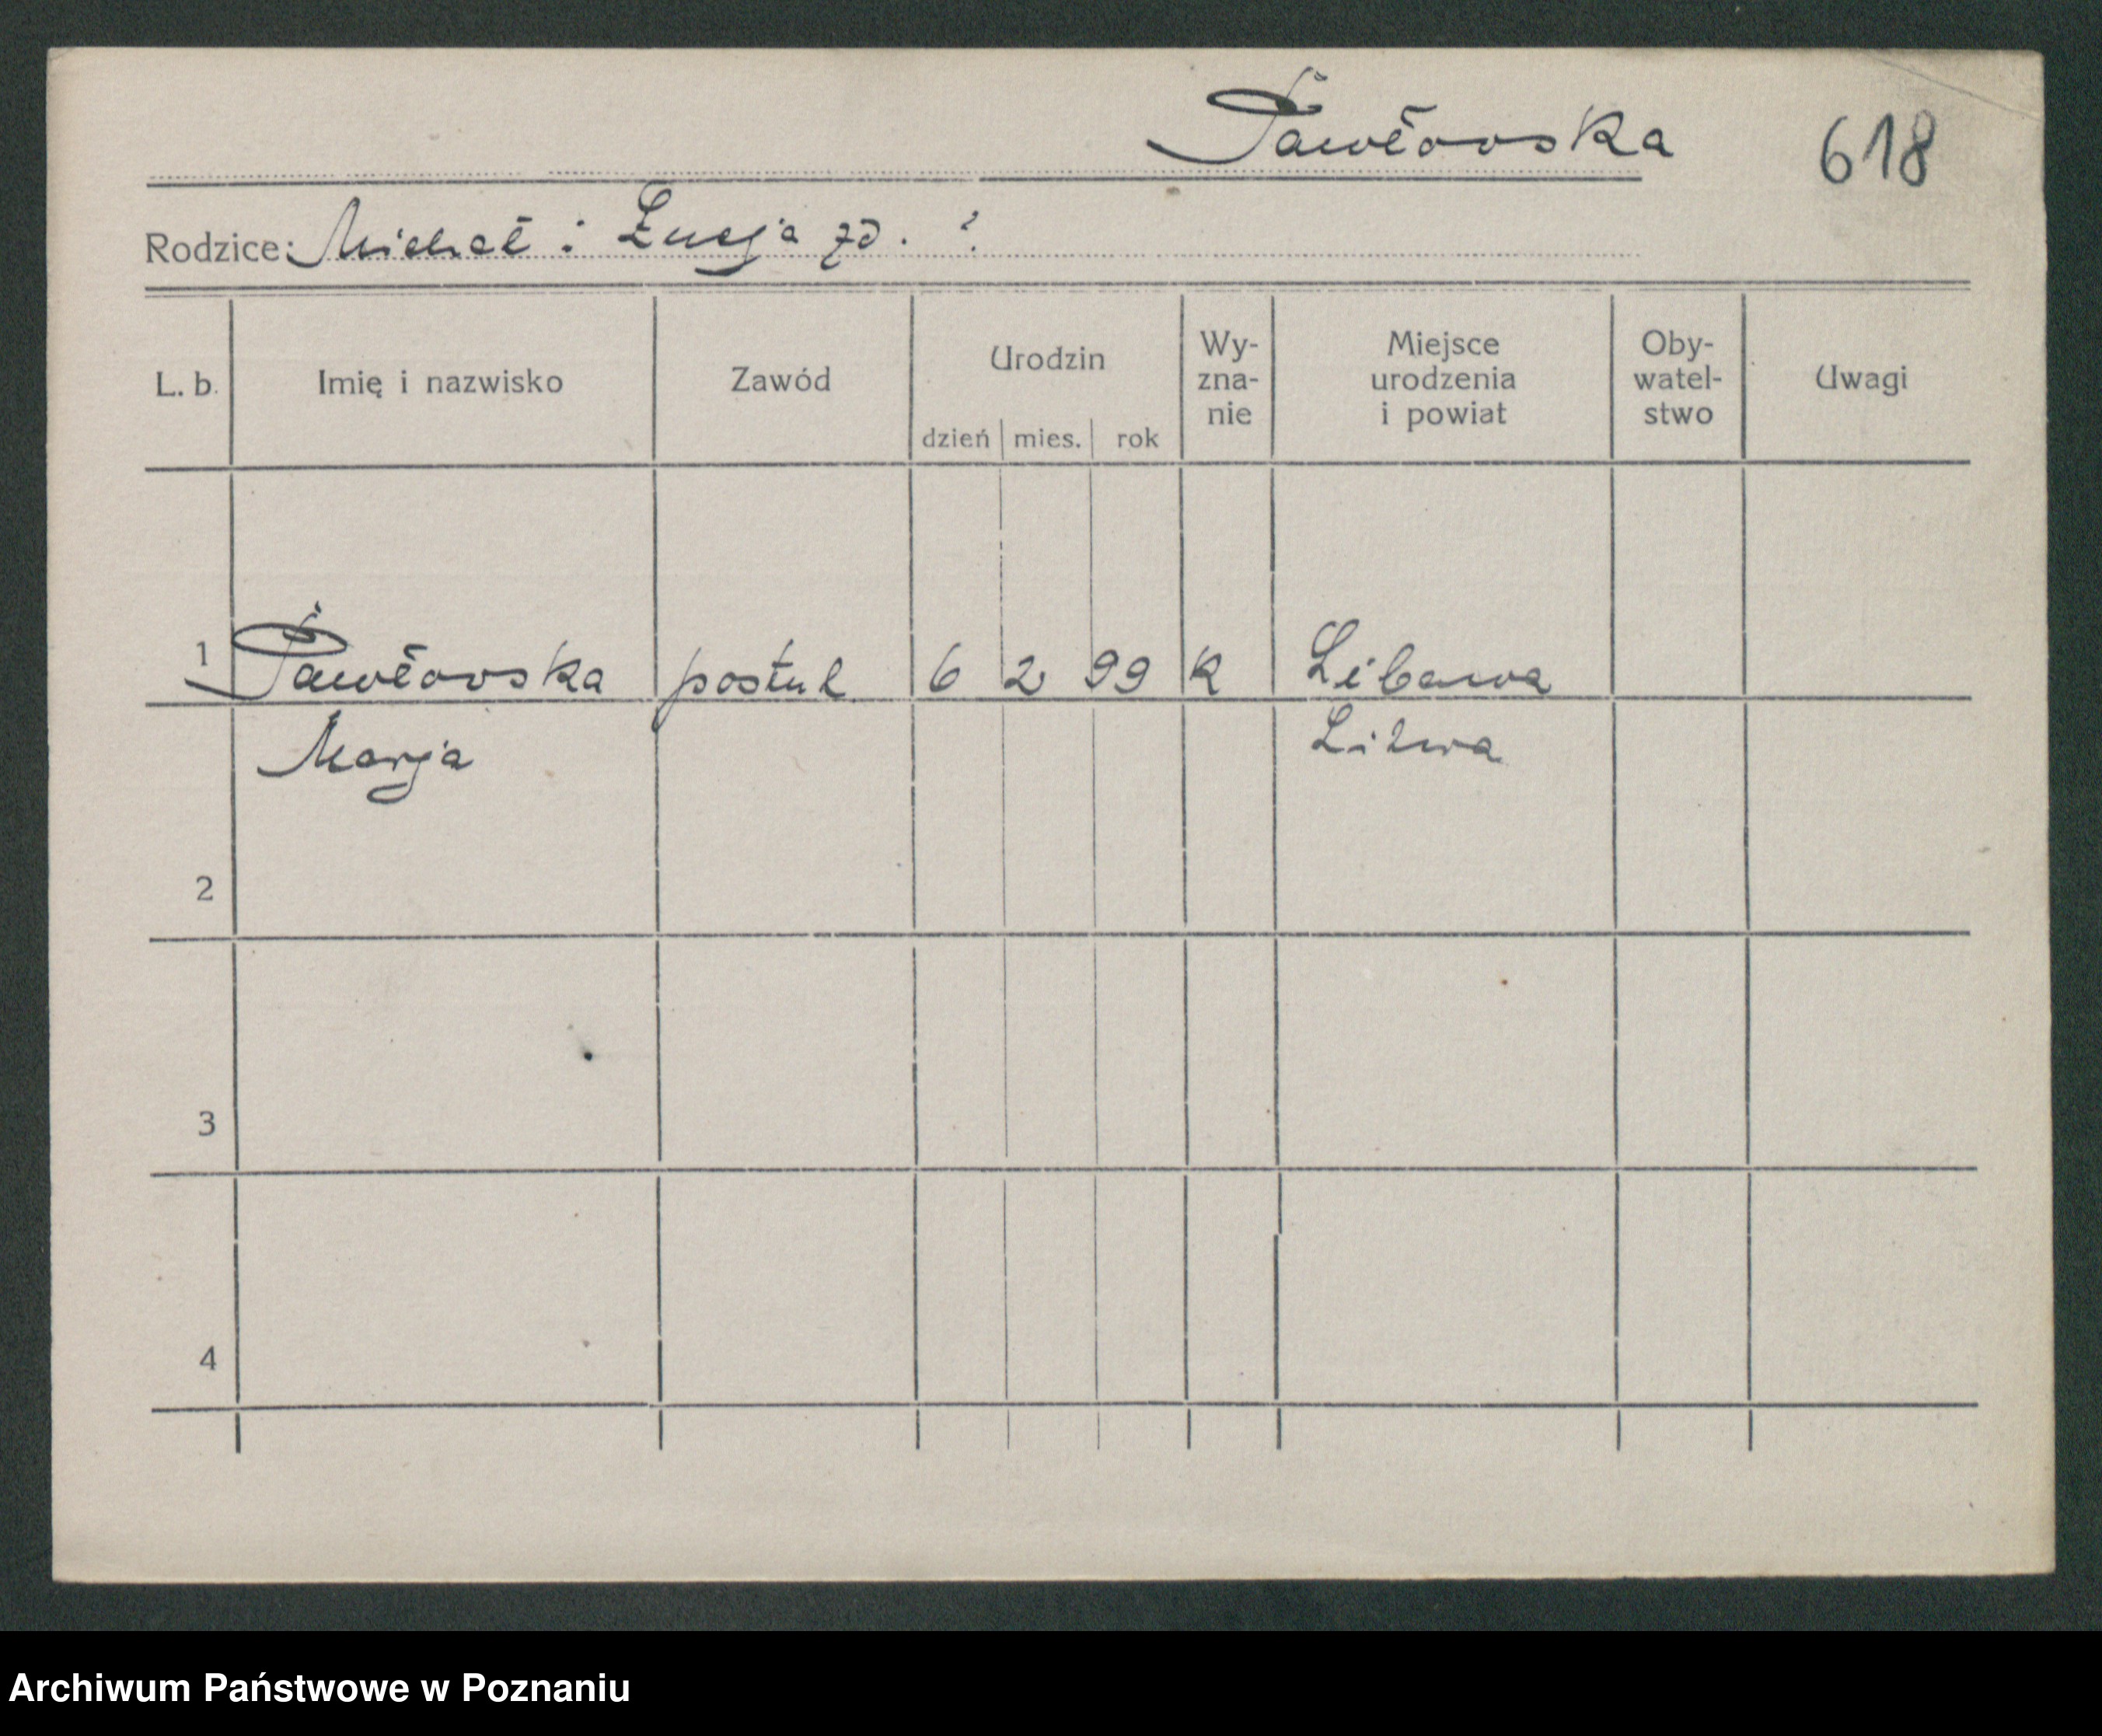 Pawłowska 618
Rodzice: Michał i Łucja zd. ?
L. b. Imię i nazwisko Zawód Urodzin dzień mies. rok Wy-zna-nie Miejsce urodzenia i powiat Oby-watel-stwo Uwagi
1 Pawłowska postul. 6 2 99 k Libawa
Marja Litwa
2
3
4
Archiwum Państwowe w Poznaniu